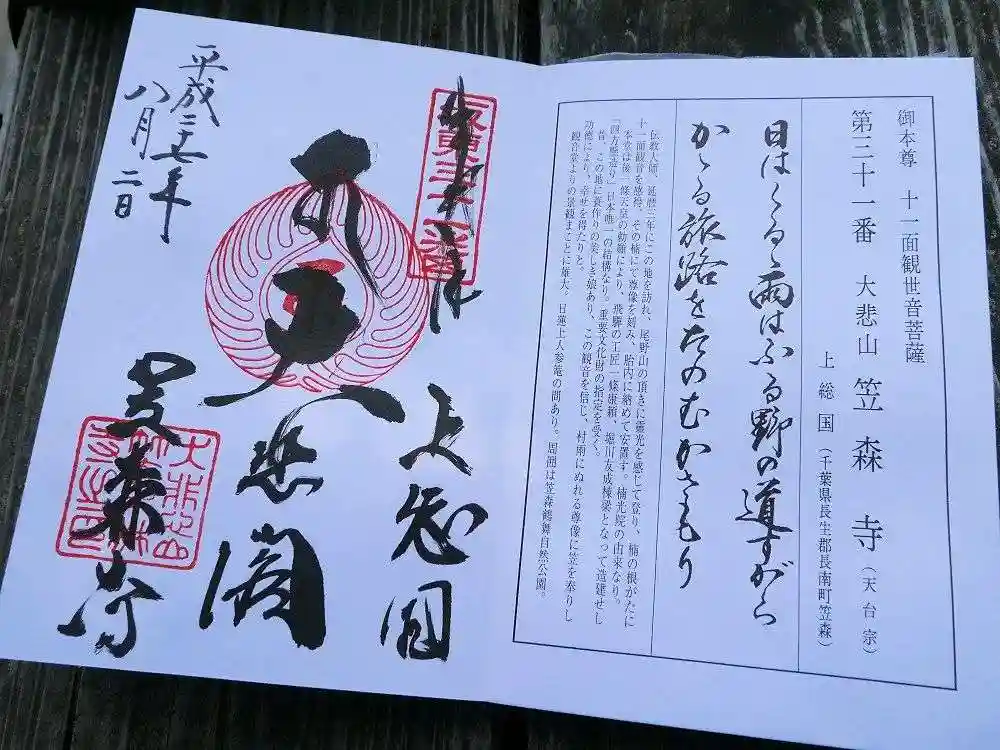 御本尊 十一面観世音菩薩
第三十一番 大悲山 笠森寺(天台宗)
上総国(千葉県長生郡長南町笠森)
日はくるゝ雨はふる野の道すがら
かゝる旅路をたのむかさもり
伝教大師、延暦三年にこの地を訪れ、尾野山の頂きに霊光を感じて登り、楠の根がたに
十一面観音を感得、その楠にて尊像を刻み、胎内に納めて安置す。楠光院の由来なり。
本堂は後一條天皇の勅願により、飛騨の工匠一條康頼、堀川友成棟梁となって造建せし
「四方懸造り」日本唯一の結構なり。重要文化財の指定を受く。
昔、この地に蓑作りの美しき娘あり、この観音を信じ、村雨にぬれる尊像に笠を奉りし
功徳により、幸せを得たりと。
観音堂よりの景観まことに雄大。日蓮上人参篭の間あり。周囲は笠森鶴舞自然公園。
坂東三十一番
上総国
大悲閣
笠森寺
平成二十七年
八月二日